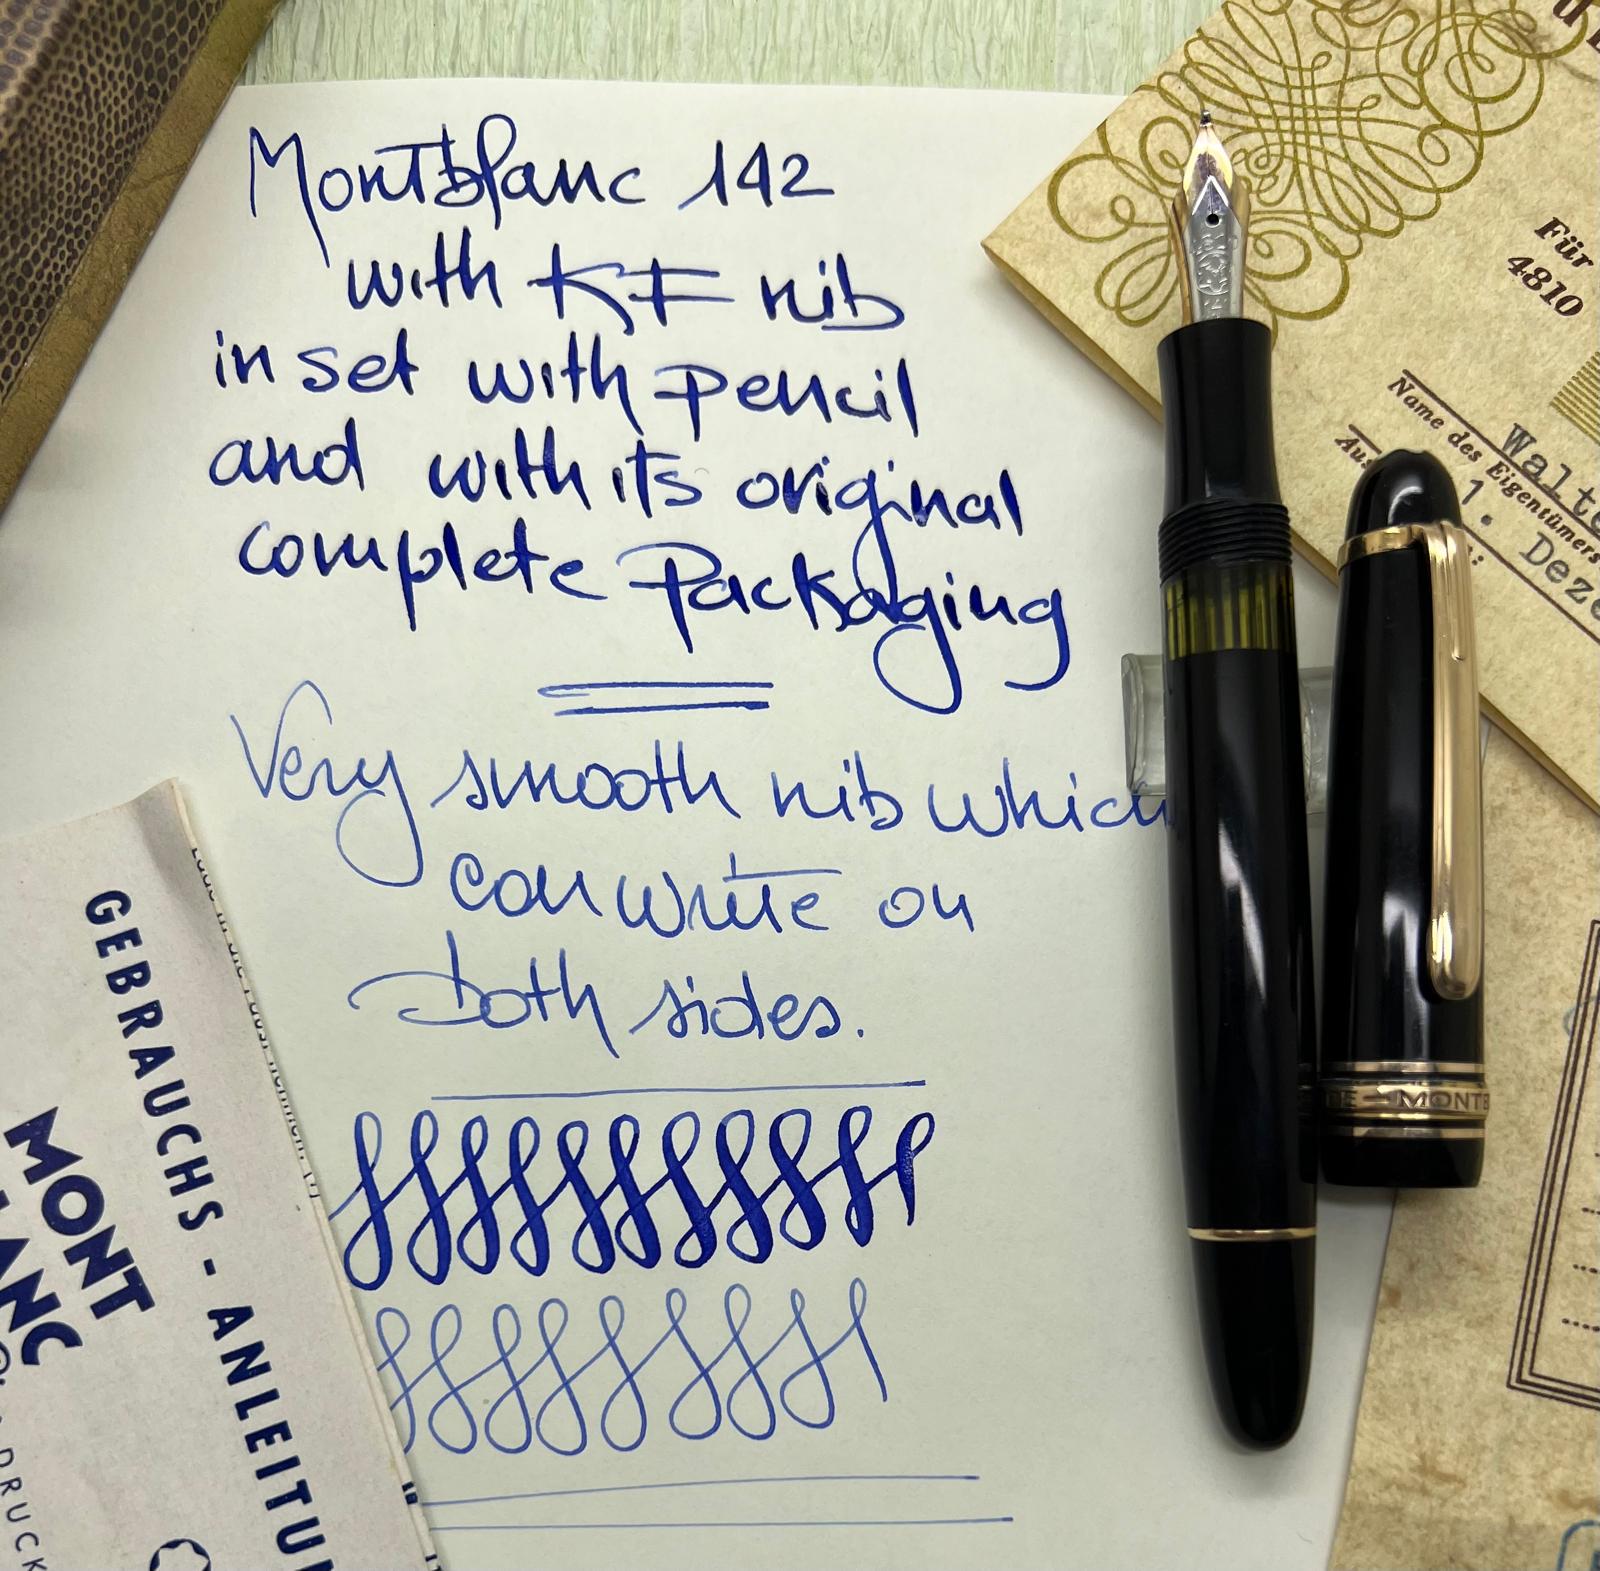 Montblanc 142
with KF nib
in set with pencil
and with its original
complete Packaging
Very smooth nib which
can write on
both sides.
GEBRAUCHS-ANLEITU
MONT
LANC
DRUCK
Für
4810
Name des Eigentümers
Walte
1. Deze
MONTB